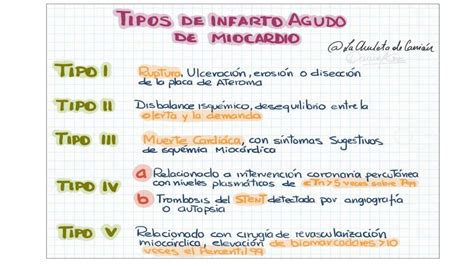 TIPOS DE INFARTO AGUDO
DE MIOCARDIO
TIPO I
Ruptura, Ulceración, erosión o disección
de la placa de Ateroma
TIPO II
Disbalance isquémico, desequilibrio entre la
oferta y la demanda
TIPO III
Muerte Cardiáca, con síntomas Sugestivos
de isquemia Miocárdica
TIPO IV
a Relacionado a intervención coronaria percutánea
con niveles plasmáticos de cTn > 5 veces sobre P99
b Trombosis del STENT detectada por angiografía
o autopsia
TIPO V
Relacionado con cirugía de revascularización
miocárdica, elevación de biomarcadores >10
veces el Percentil 99